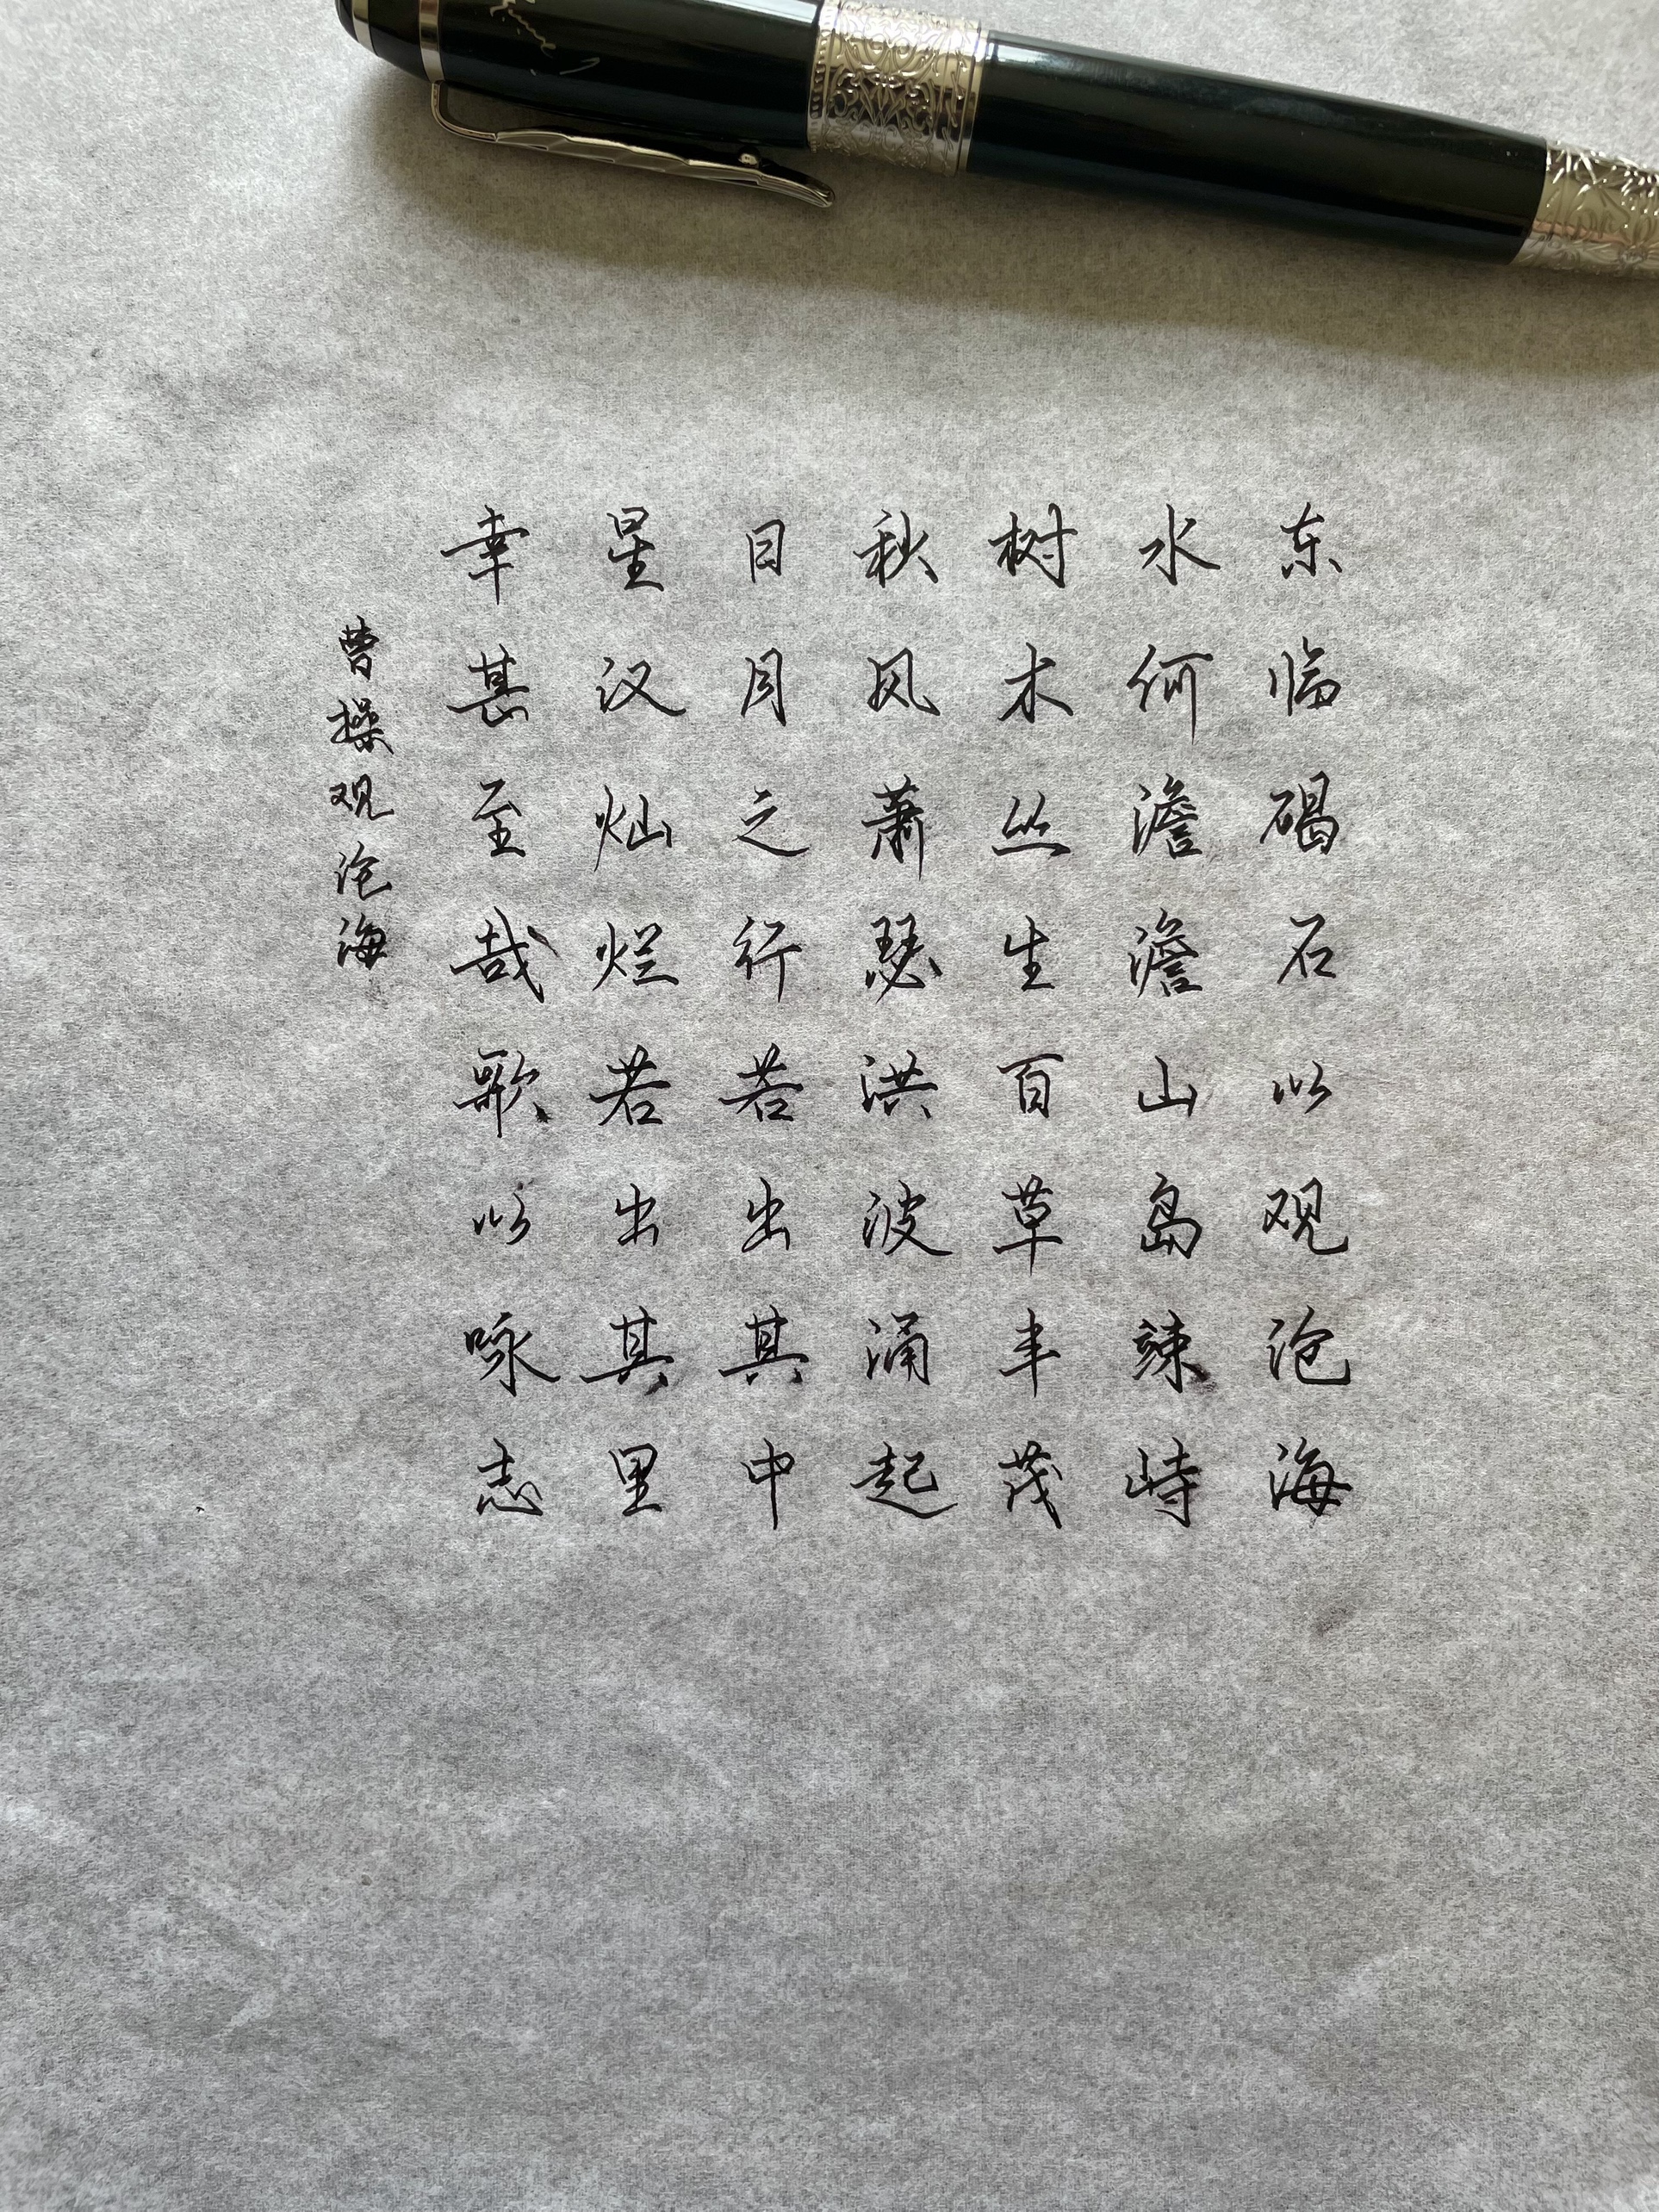 东临碣石以观沧海
水何澹澹山岛竦峙
树木丛生百草丰茂
秋风萧瑟洪波涌起
日月之行若出其中
星汉灿烂若出其里
幸甚至哉歌以咏志
曹操观沧海